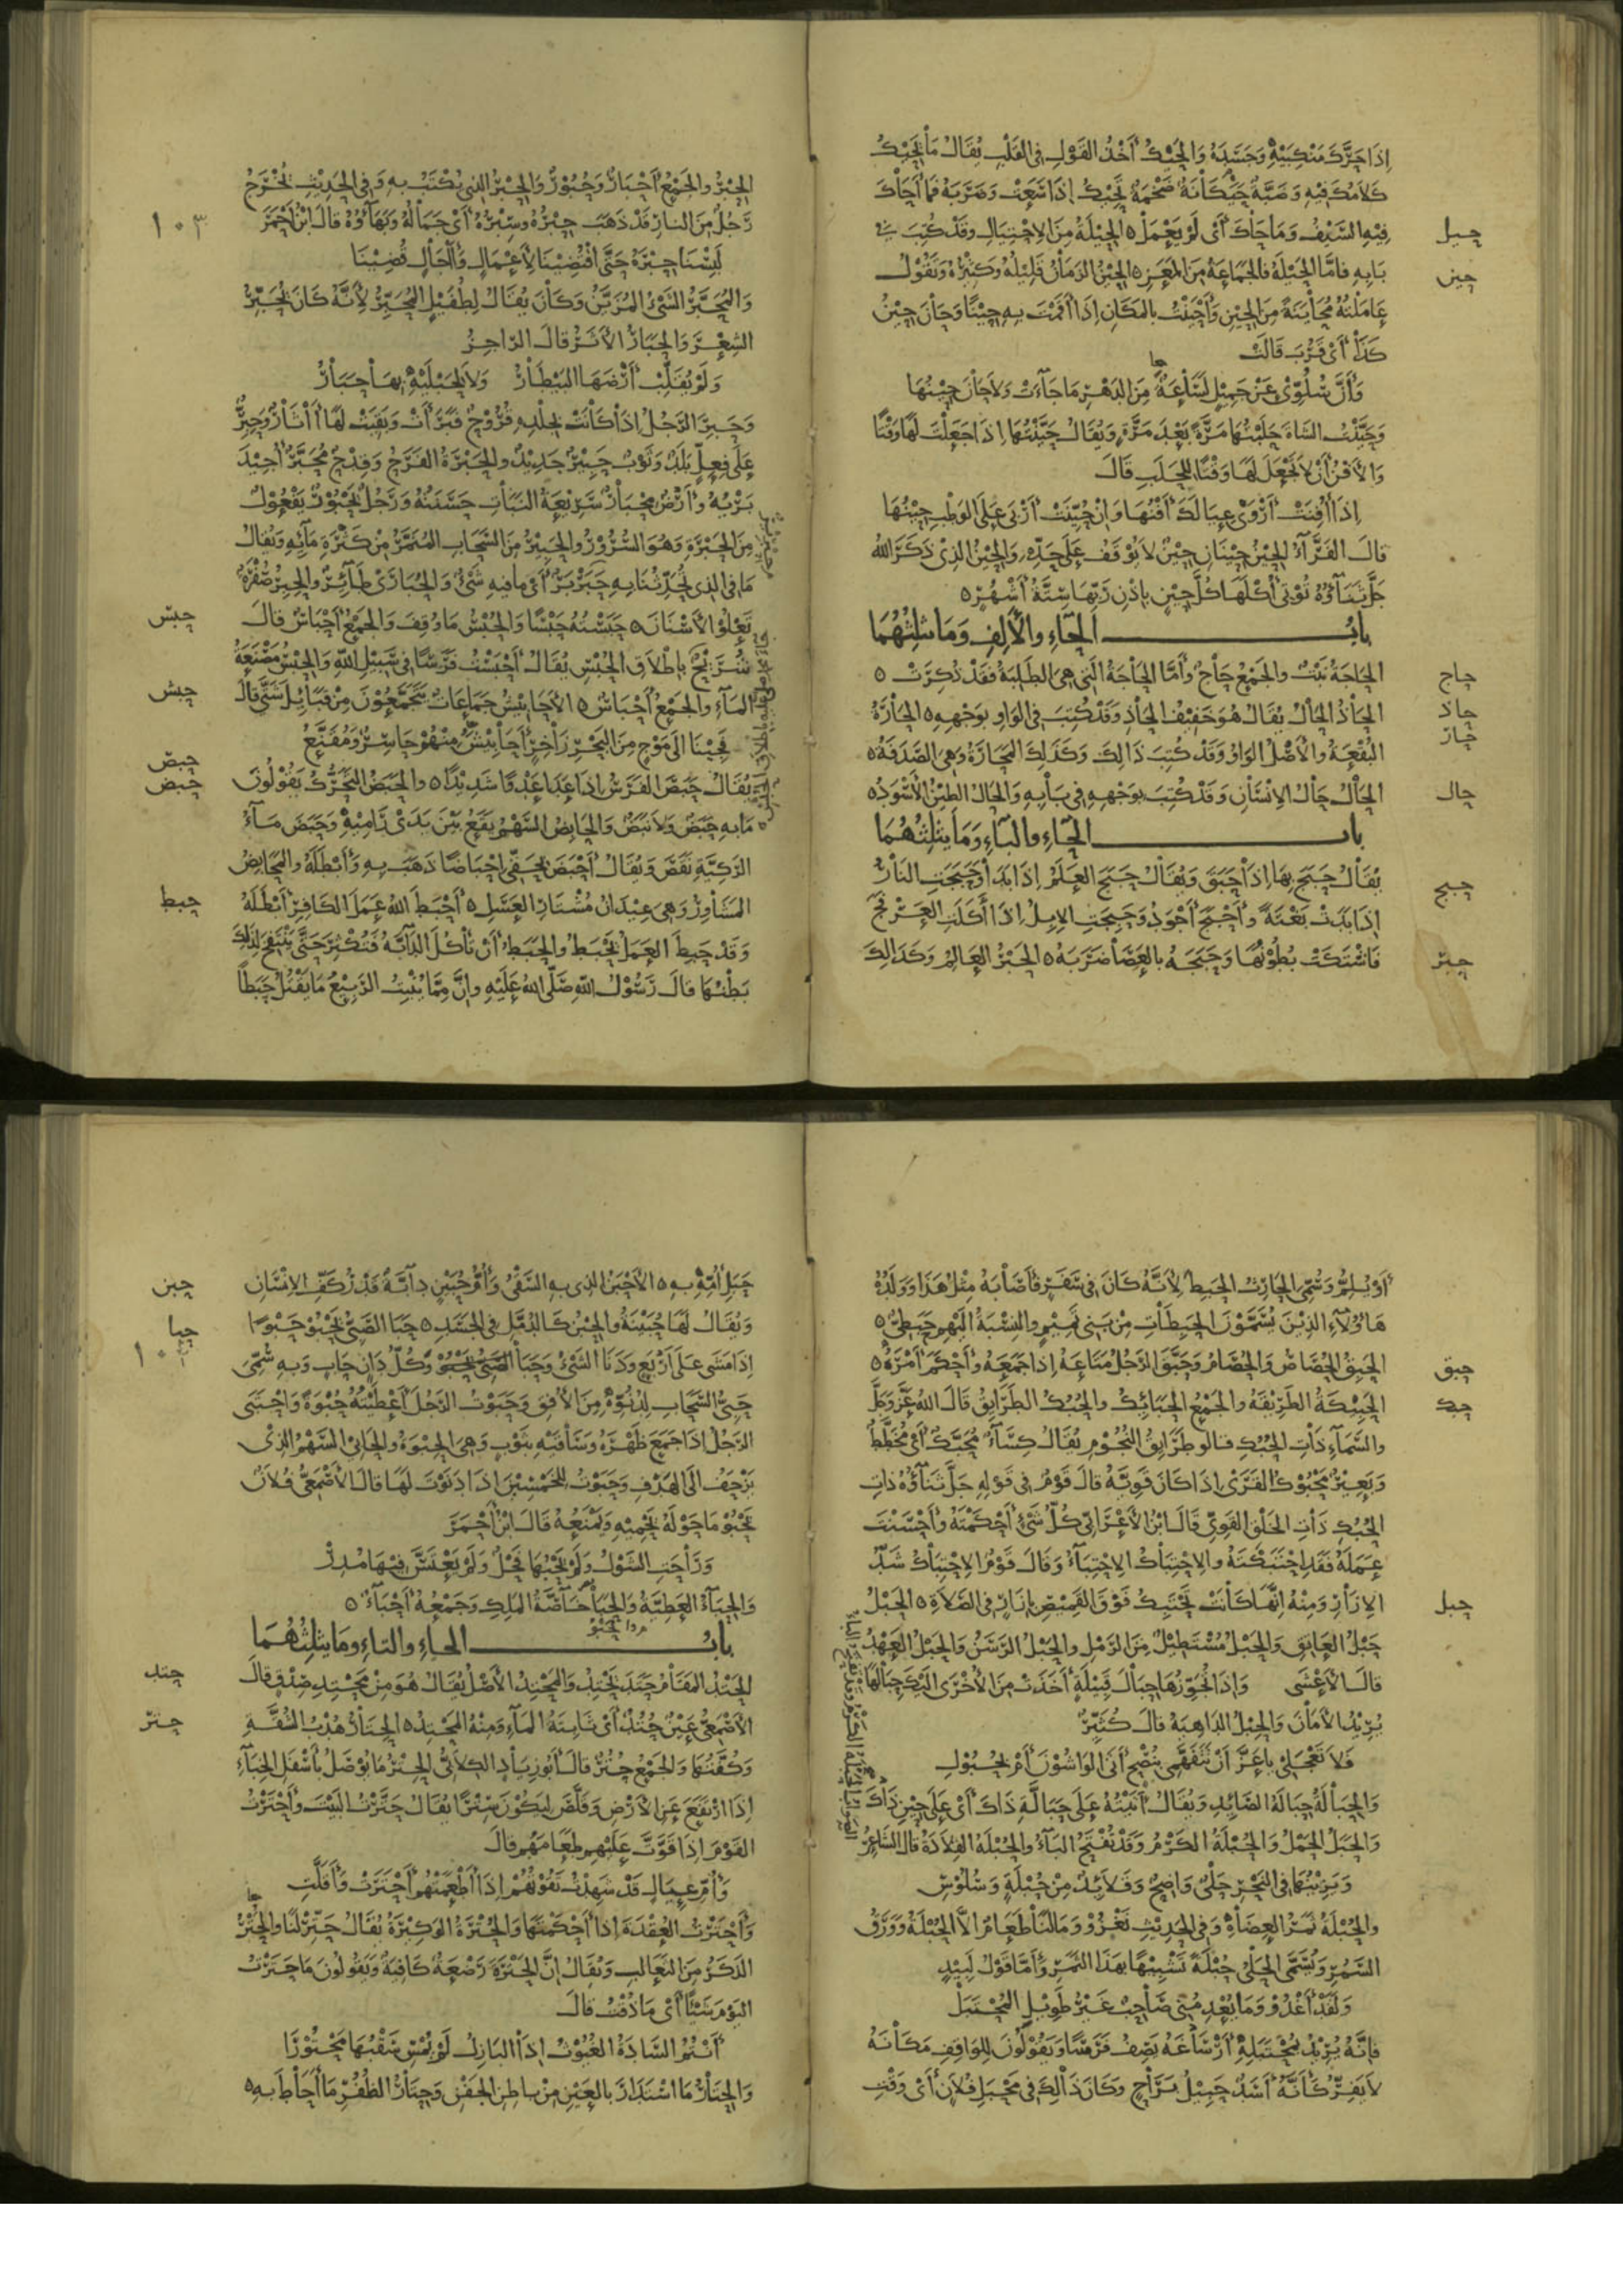 إذا حرك منكبيه وجسده والحيك أخذ القول في القلب يقال ما يحيك
كلامك فيه وضبة حيكانة ضخمة تحيك إذا سعت وضربه فما أحاك
فيه السيف وما حاك أي لم يعمل ٥ الحيلة من الاحتيال وقد كتبت في
حيل
بابه فاما الحيلة فالجماعة من المعز ٥ الحين الزمان قليله وكثيره وتقول
حين
عاملته محاينة من الحين وأحينت بالمكان إذا أقمت به حينا وحان حين
كذا أي قرب قالت
وأن سلوي عن جميل لساعة من الدهر ما جاءت ولا حان حينها
وحينت الشاة حلبتها مرة بعد مرة ويقال حينتها إذا جعلت لها وقتا
والافن أن لا تجعل لها وقتا للحلب قال
إذا أفنت أروى عيالك أفنها وإن حينت أربى على الوطب حينها
قال الفراء الحين حينان حين لا يوقف على حده والحين الذي ذكر الله
جل ثناؤه تؤتي أكلها كل حين بإذن ربها ستة أشهر ٥
باب الحاء والألف وما يثلثهما
الحاجة نبت والجمع حاج وأما الحاجة التي هي الطلبة فقد ذكرت ٥
حاج
الحاذ الحال يقال هو خفيف الحاذ وقد كتب في الواو بوجهه ٥ الحارة
حاذ
حار
البقعة والأصل الواو وقد كتبت ذالك وكذلك المحارة وهي الصدفة ٥
الحال حال الانسان وقد كتبت بوجهه في بابه والحال الطين الأسود ٥
حال
باب الحاء والباء وما يثلثهما
يقال حبج بها إذا حبق ويقال حبج العلم إذا بدا وحبجت النار
حبج
إذا بدت بغتة وأحبج أجود وحبجت الإبل إذا أكلت العرفج
فاشتكت بطونها وحبجه بالعصا ضربه ٥ الحبر العالم وكذالك
حبر
الحبر والجمع أحبار وحبور والحبر الذي يكتب به وفي الحديث يخرج
رجل من النار قد ذهب حبره وسبره أي جماله وبهاؤه قال ابن أحمر
١٠٣
لبسنا حبره حتى اقتضينا لأعمال وآجال قضينا
والمحبر الشيء المزين وكان يقال لطفيل المحبر لأنه كان يحبر
الشعر والحبار الأثر قال الراجز
ولم يقلب أرضها البيطار ولا لحبليه بها حبار
وحبر الرجل إذا كانت بجلده قروح فبرأت وبقيت لها آثار وحبر
على فعل بلد وثوب حبير جديد والحبرة الفرح وقدح محبر أجيد
بريه وأرض محبار سريعة النبات حسنته ورجل يحبور يفعول
من الحبرة وهو السرور والحبير من السحاب المنمر من كثرة مائه ويقال
ما في الذي تحدثنا به حبربر أي ما فيه شيء والحبارى طائر والحبر صفرة
تعلو الأسنان ٥ حبسته حبسا والحبس ما وقف والجمع أحباس قال
حبس
شريح بإطلاق الحبس يقال أحبست فرسا في سبيل الله والحبس مصنعة
الماء والجمع أحباس ٥ الأحابيش جماعات يتجمعون من قبائل شتى قال
حبش
فجينا الى موج من البحر زاخر أحابيش منهم حاسر ومقنع
يقال حبص الفرس إذا عدا عدوا شديدا ٥ والحبض التحرك يقولون
حبص
حبض
ما به حبض ولا نبض والحابض السهم يقع بين يدي راميه وحبض ماء
الركية نقص ويقال أحبض بحقي احباضا ذهب به وأبطله والمحابض
المشاوز وهي عيدان مشتار العسل ٥ أحبط الله عمل الكافر أبطله
حبط
وقد حبط العمل يحبط والحبط أن تأكل الدابة فتكثر حتى ينتفخ لذلك
بطنها قال رسول الله صلى الله عليه وان مما ينبت الربيع ما يقتل حبطا
أو يلم وسمي الحارث الحبط لأنه كان في سفر فأصابه مثل هذا وولده
هاؤلاء الذين يسمون الحبطات من بني تميم والنسبة اليهم حبطي ٥
الحبق الحصاص والحصام وحبق الرجل متاعه إذا جمعه وأحكم أمره ٥
حبق
الحبيكة الطريقة والجمع الحبائك والحبك الطرايق قال الله عز وجل
حبك
والسماء ذات الحبك قالو طرايق النجوم يقال كساء محبك أي مخطط
وبعير محبوك القرى إذا كان قويه قال قوم في قوله جل ثناؤه ذات
الحبك ذات الخلق القوي قال ابن الأعرابي كل شيء أحكمته وأحسنت
عمله فقد احتبكته والاحتباك الاحتباء وقال قوم الاحتباك شد
الازار ومنه إنها كانت تحتبك فوق القميص بإزار في الصلاة ٥ الحبل
حبل
حبل العاتق والحبل مستطيل من الرمل والحبل الرسن والحبل العهد
قال الأعشى وإذا تجوزها حبال قبيلة أخذت من الأخرى اليك حبالها
يريد الأمان والحبل الداهية قال كثير
فلا تعجلي يا عز أن تتفهمي بنصح أتى الواشون أم بحبول
والحبالة حبالة الصائد ويقال أتيته على حبالة ذاك أي على حين ذاك
والحبل الحمل والحبلة الكرم وقد تفتح الباء والحبلة القلادة قال الشاعر
ويزينها في النحر حلي واضح وقلائد من حبلة وسلوس
والحبلة ثمر العضاه وفي الحديث نغزو وما لنا طعام الا الحبلة وورق
السمر وسمي الحلي حبلة تشبيها بهذا الثمر وأما قول لبيد
ولقد أغدو وما يعدمني صاحب غير طويل المحتبل
فإنه يريد بمحتبله أرساغه يصف فرسا ويقولون للواقف مكانه
لا يفر كأنه أسد حبيل براح وكان ذالك في محبل فلان أي وقت
حبل أمه به ٥ الأحبن الذي به السقي وأم حبين دابة قدر كف الانسان
حبن
ويقال لها حبينة والحبن كالدمل في الجسد ٥ حبا الصبي يحبو حبوا
حبا
إذا مشى على أربع ودنا الشيء وحبا وكل دان حاب وبه سمي
١٠٤
حبي السحاب لدنوه من الأفق وحبوت الرجل أعطيته حبوة واحتبى
الرجل إذا جمع ظهره وساقيه بثوب وهي الحبوة والحابي السهم الذي
يزحف الى الهدف وحبوت للخمسين إذا دنوت لها قال الأصمعي فلان
يحبو ما حوله يحميه ويمنعه قال ابن أحمر
وراحت الشول ولم يحبها فحل ولم يعتس فيها مدر
والحباء العطية والحبا خاصة الملك وجمعه أحباء ٥
باب الحاء والتاء وما يثلثهما
الحتد المقام حتد يحتد والمحتد الأصل يقال هو من محتد صدق قال
حتد
الأصمعي عين حتد أي ثابتة الماء ومنه المحتد ٥ الحتار هدب الشقة
حتر
وكفتها والجمع حتر قال أبو زياد الكلابي الحتر ما يوصل بأسفل الخباء
إذا ارتفع عن الأرض وقلص ليكون سترا يقال حترت البيت وأحترت
القوم إذا قوت عليهم طعامهم قال
وأم عيال قد شهدت تقوتهم إذا أطعمتهم أحترت وأقلت
وأحترت العقدة إذا أحكمتها والحترة الوكيرة يقال حتر لنا والحتر
الذكر من الثعالب ويقال إن الحترة رضعة كافية ويقولون ما حترت
اليوم شيئا أي ما ذقت قال
أنتم السادة الغيوث إذا البازل لم يمس سقبها محتورا
والحتار ما استدار بالعين من باطن الجفن وحتار الظفر ما أحاط به ٥